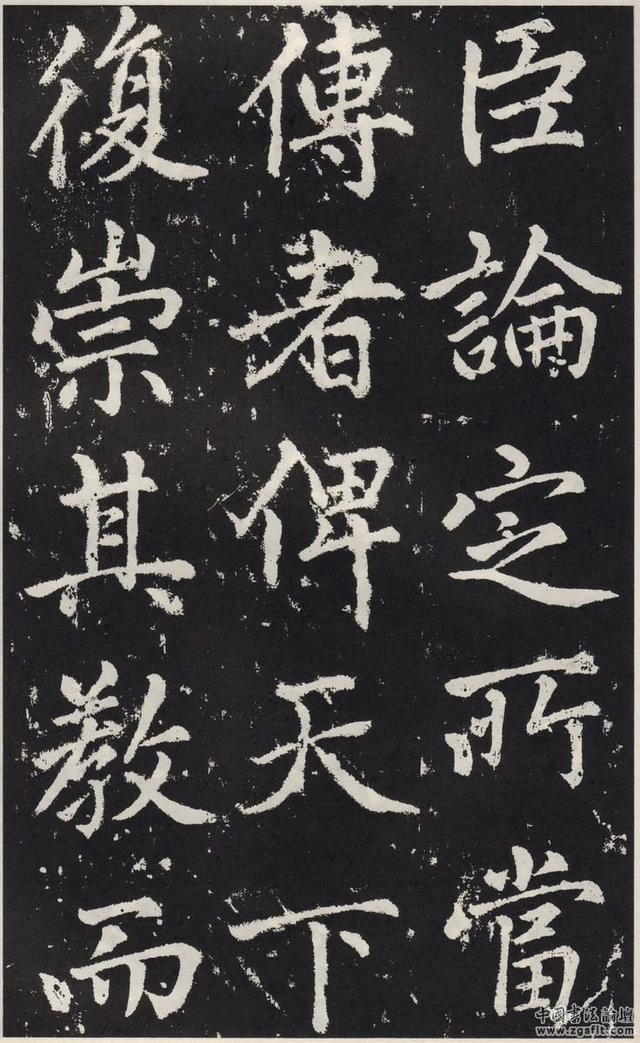 臣論定所當
傳者俾天下
復崇其教而
中国书法论坛
www.zgsflt.com